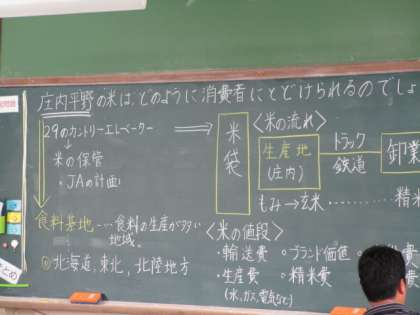 庄内平野の米は、どのように消費者にとどけられるのでしょ
29のカントリーエレベーター
↓
米の保管
・JAの計画
食料基地…食料の生産が多い
地域。
北海道、東北、北陸地方
米袋
〈米の流れ〉
生産地
(庄内)
トラック
鉄道
卸業
もみ→玄米
精米
〈米の値段〉
・輸送費
・ブランド価値
・生産費
・精米費
(水、ガス、電気など)
まとめ